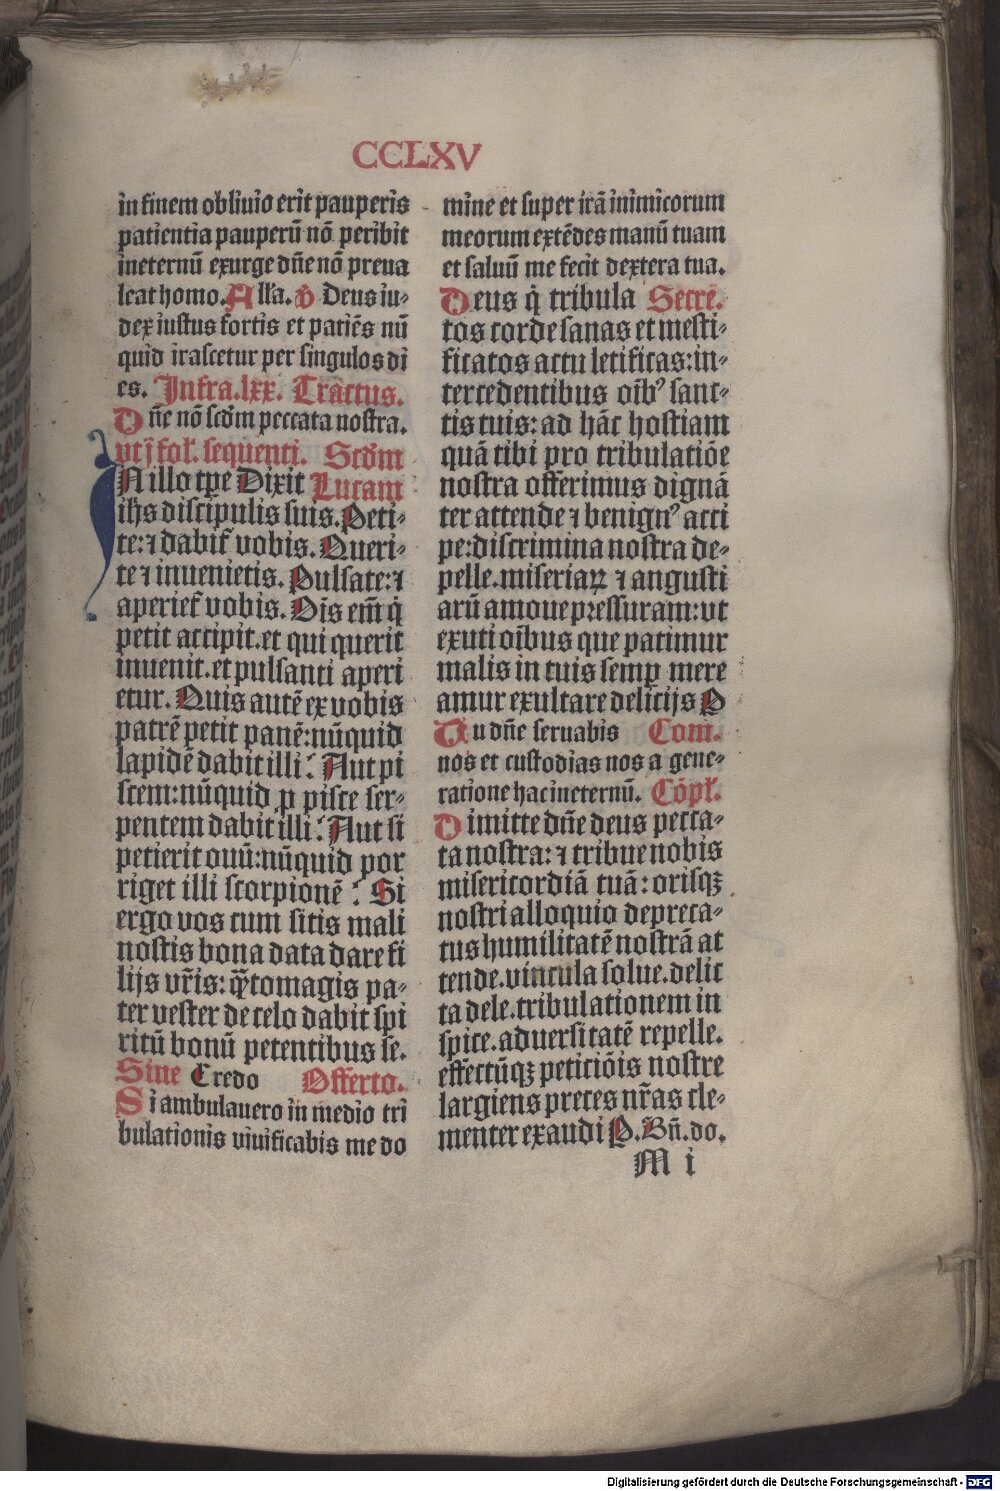 CCLXV
in finem obliuio erit pauperis
patientia pauperū nō peribit
ineternū exurge dn̄e nō preua
leat homo. Alła. ℣ Deus iu-
dex iustus fortis et patiēs nū
quid irascetur per singulos di
es. Infra .lxx. Tractus.
Dn̄e nō scd̄m peccata nostra.
vtꝫ fol̓. sequenti. Scd̄m
IN illo tp̄e Dixit Lucam
ih̄s discipulis suis. Peti-
te: ⁊ dabit᷑ vobis. Queri-
te ⁊ inuenietis. Pulsate: ⁊
aperiet᷑ vobis. Oīs em̄ q̇
petit accipit. et qui querit
inuenit. et pulsanti aperi
etur. Quis autē ex vobis
patrē petit panē: nūquid
lapidē dabit illi? Aut pi
scem: nūquid ꝓ pisce ser-
pentem dabit illi? Aut si
petierit ouū: nūquid por
riget illi scorpionē? Si
ergo vos cum sitis mali
nostis bona data dare fi
lijs vr̄is: q̄ntomagis pa-
ter vester de celo dabit spi
ritū bonū petentibus se.
Sine Credo Offerto.
Si ambulauero in medio tri
bulationis viuificabis me do
mine et super irā inimicorum
meorum extēdes manū tuam
et saluū me fecit dextera tua.
Deus q̇ tribula Secre.
tos corde sanas et mesti-
ficatos actu letificas: in-
tercedentibus oīb⁹ sanc-
tis tuis: ad hāc hostiam
quā tibi pro tribulatiōe
nostra offerimus dignā
ter attende ⁊ benign⁹ acci
pe: discrimina nostra de-
pelle. miseriaꝝ ⁊ angusti
arū amoue pressuram: vt
exuti oībus que patimur
malis in tuis semꝑ mere
amur exultare delicijs P
Tu dn̄e seruabis Com.
nos et custodias nos a gene-
ratione hac ineternū. Cōpł.
Dimitte dn̄e deus pecca-
ta nostra: ⁊ tribue nobis
misericordiā tuā: orisqꝫ
nostri alloquio depreca-
tus humilitatē nostrā at
tende. vincula solue. delic
ta dele. tribulationem in
spice. aduersitatē repelle.
effectūqꝫ peticiōis nostre
largiens preces nr̄as cle-
menter exaudi P. Bn̄. do.
M i
Digitalisierung gefördert durch die Deutsche Forschungsgemeinschaft - DFG